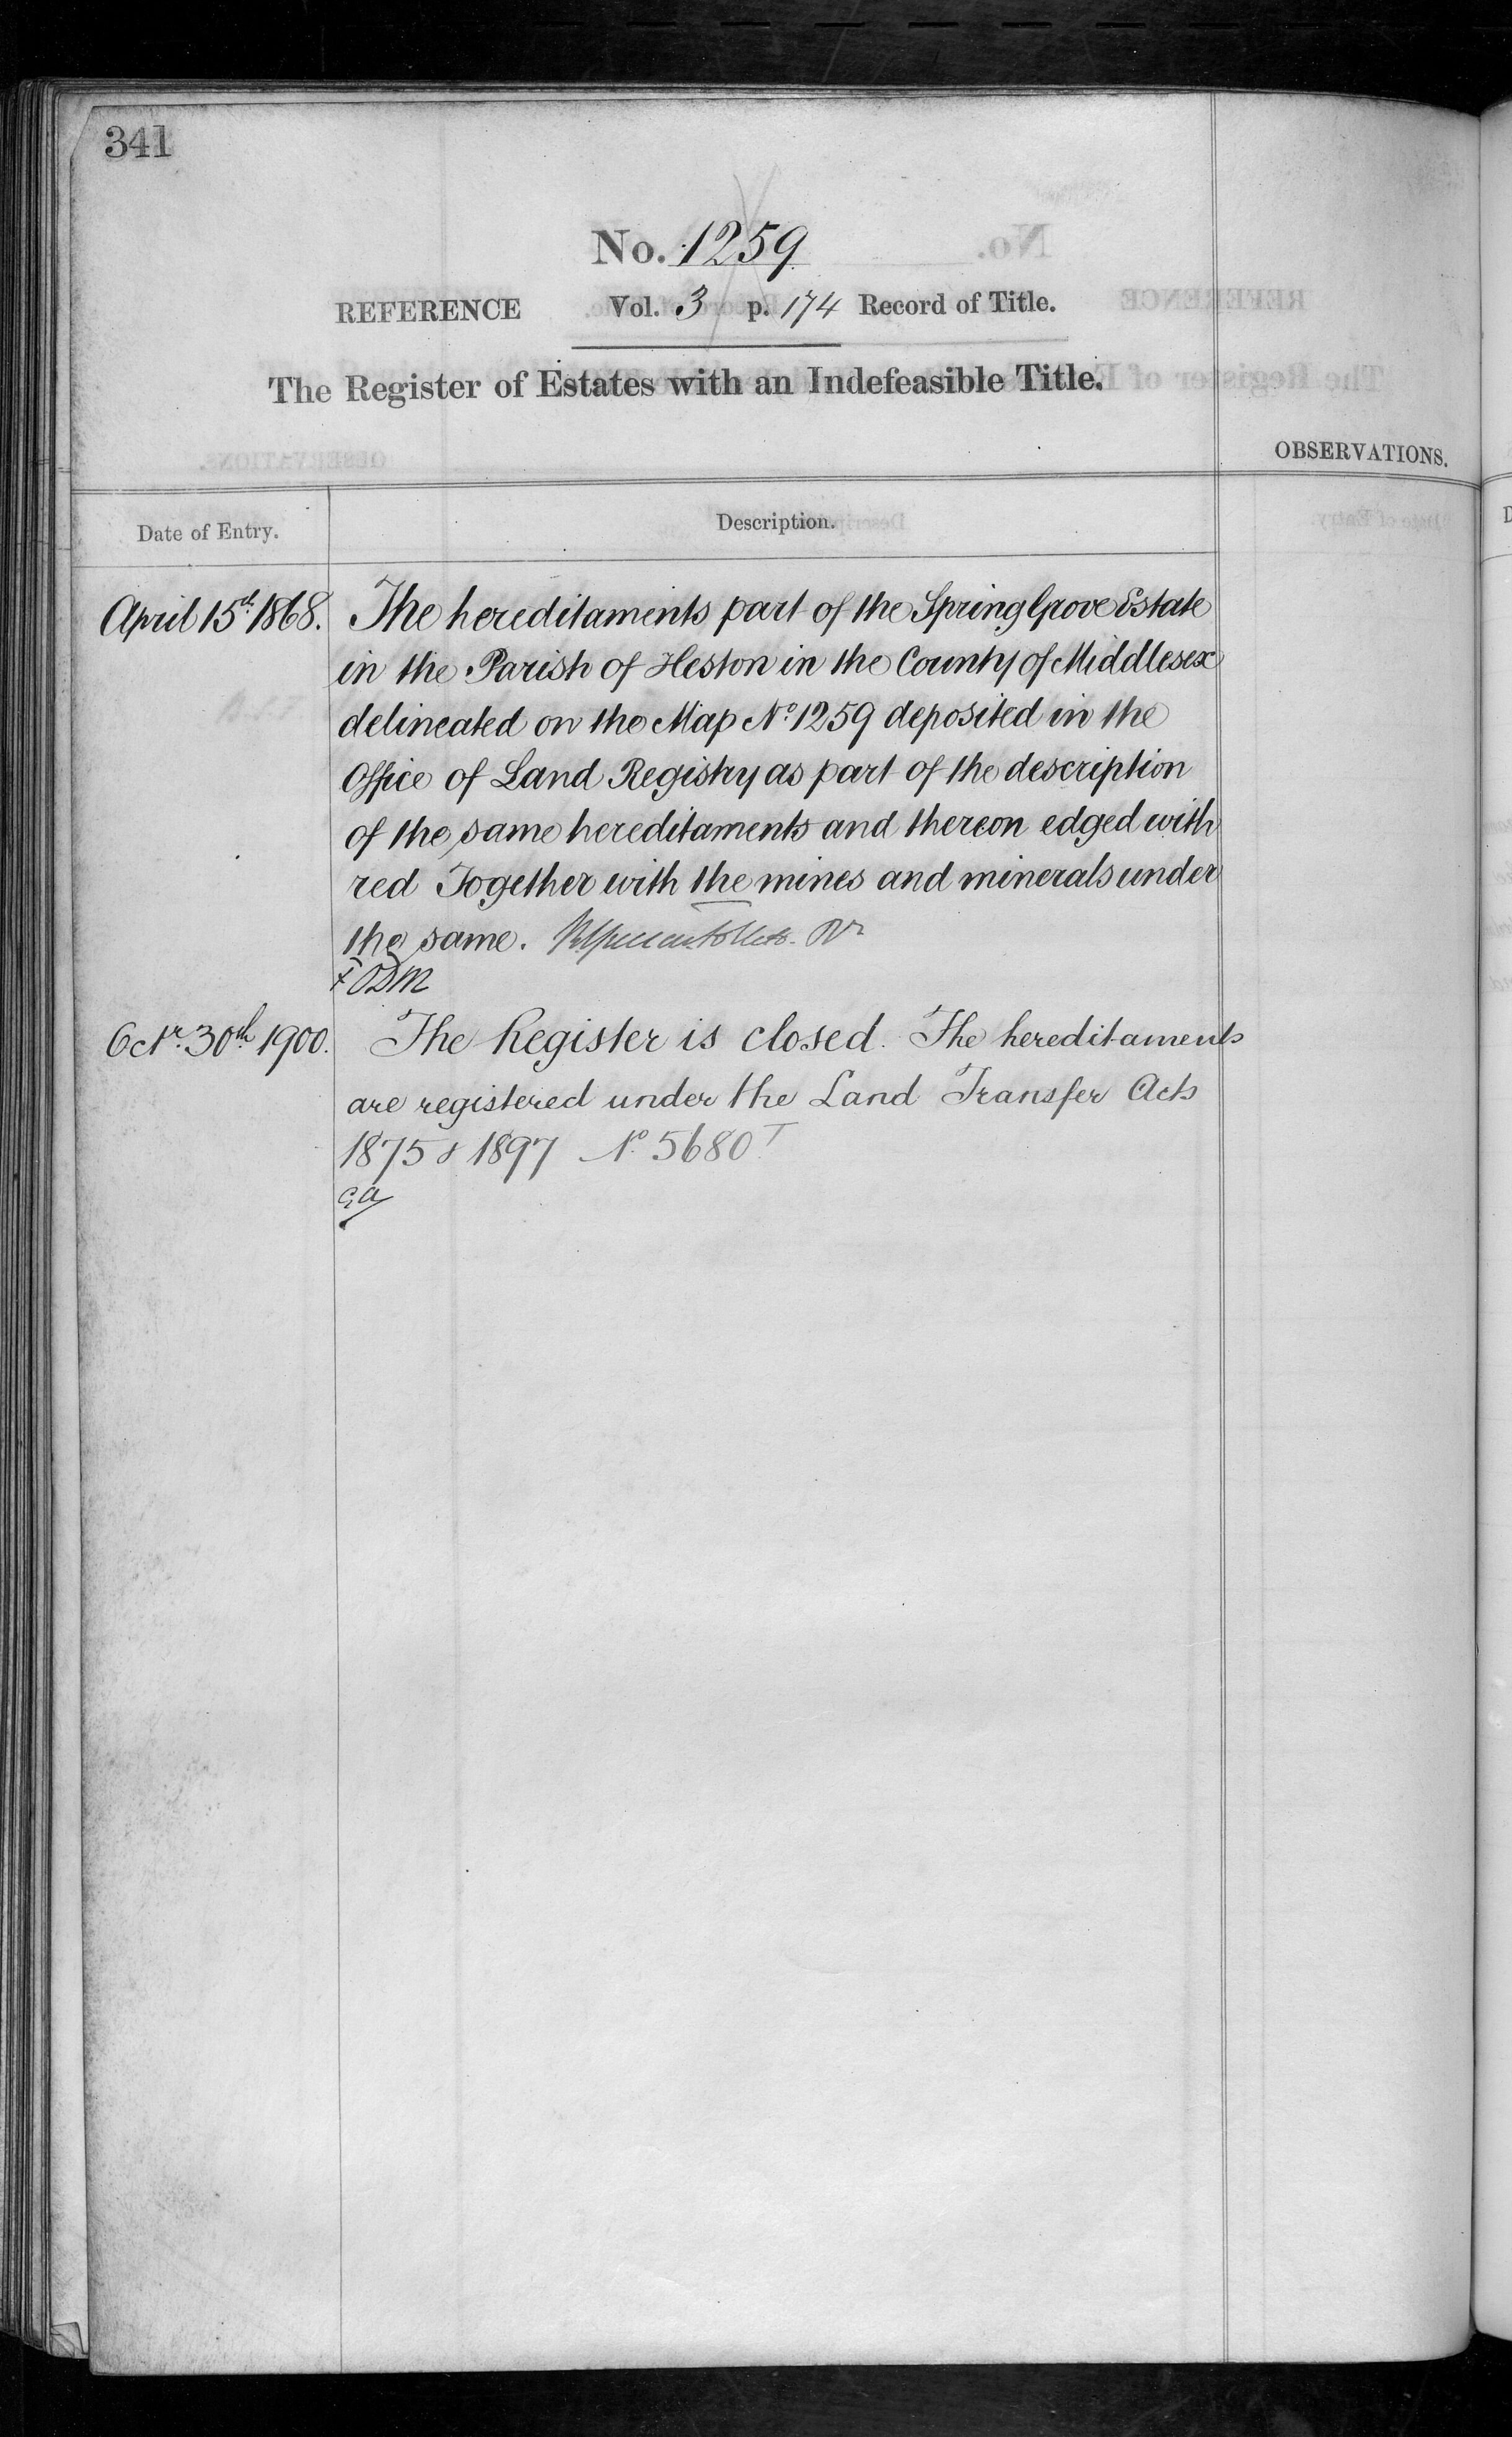 341
No. 1259
REFERENCE Vol. 3 p. 174 Record of Title.
The Register of Estates with an Indefeasible Title.
OBSERVATIONS.
Date of Entry. Description.
April 15th 1868. The hereditaments part of the Spring Grove Estate
in the Parish of Heston in the County of Middlesex
delineated on the Map No 1259 deposited in the
Office of Land Registry as part of the description
of the same hereditaments and thereon edged with
red Together with the mines and minerals under
the same.
Octr. 30th 1900. The Register is closed. The hereditaments
are registered under the Land Transfer Acts
1875 & 1897 No. 5680